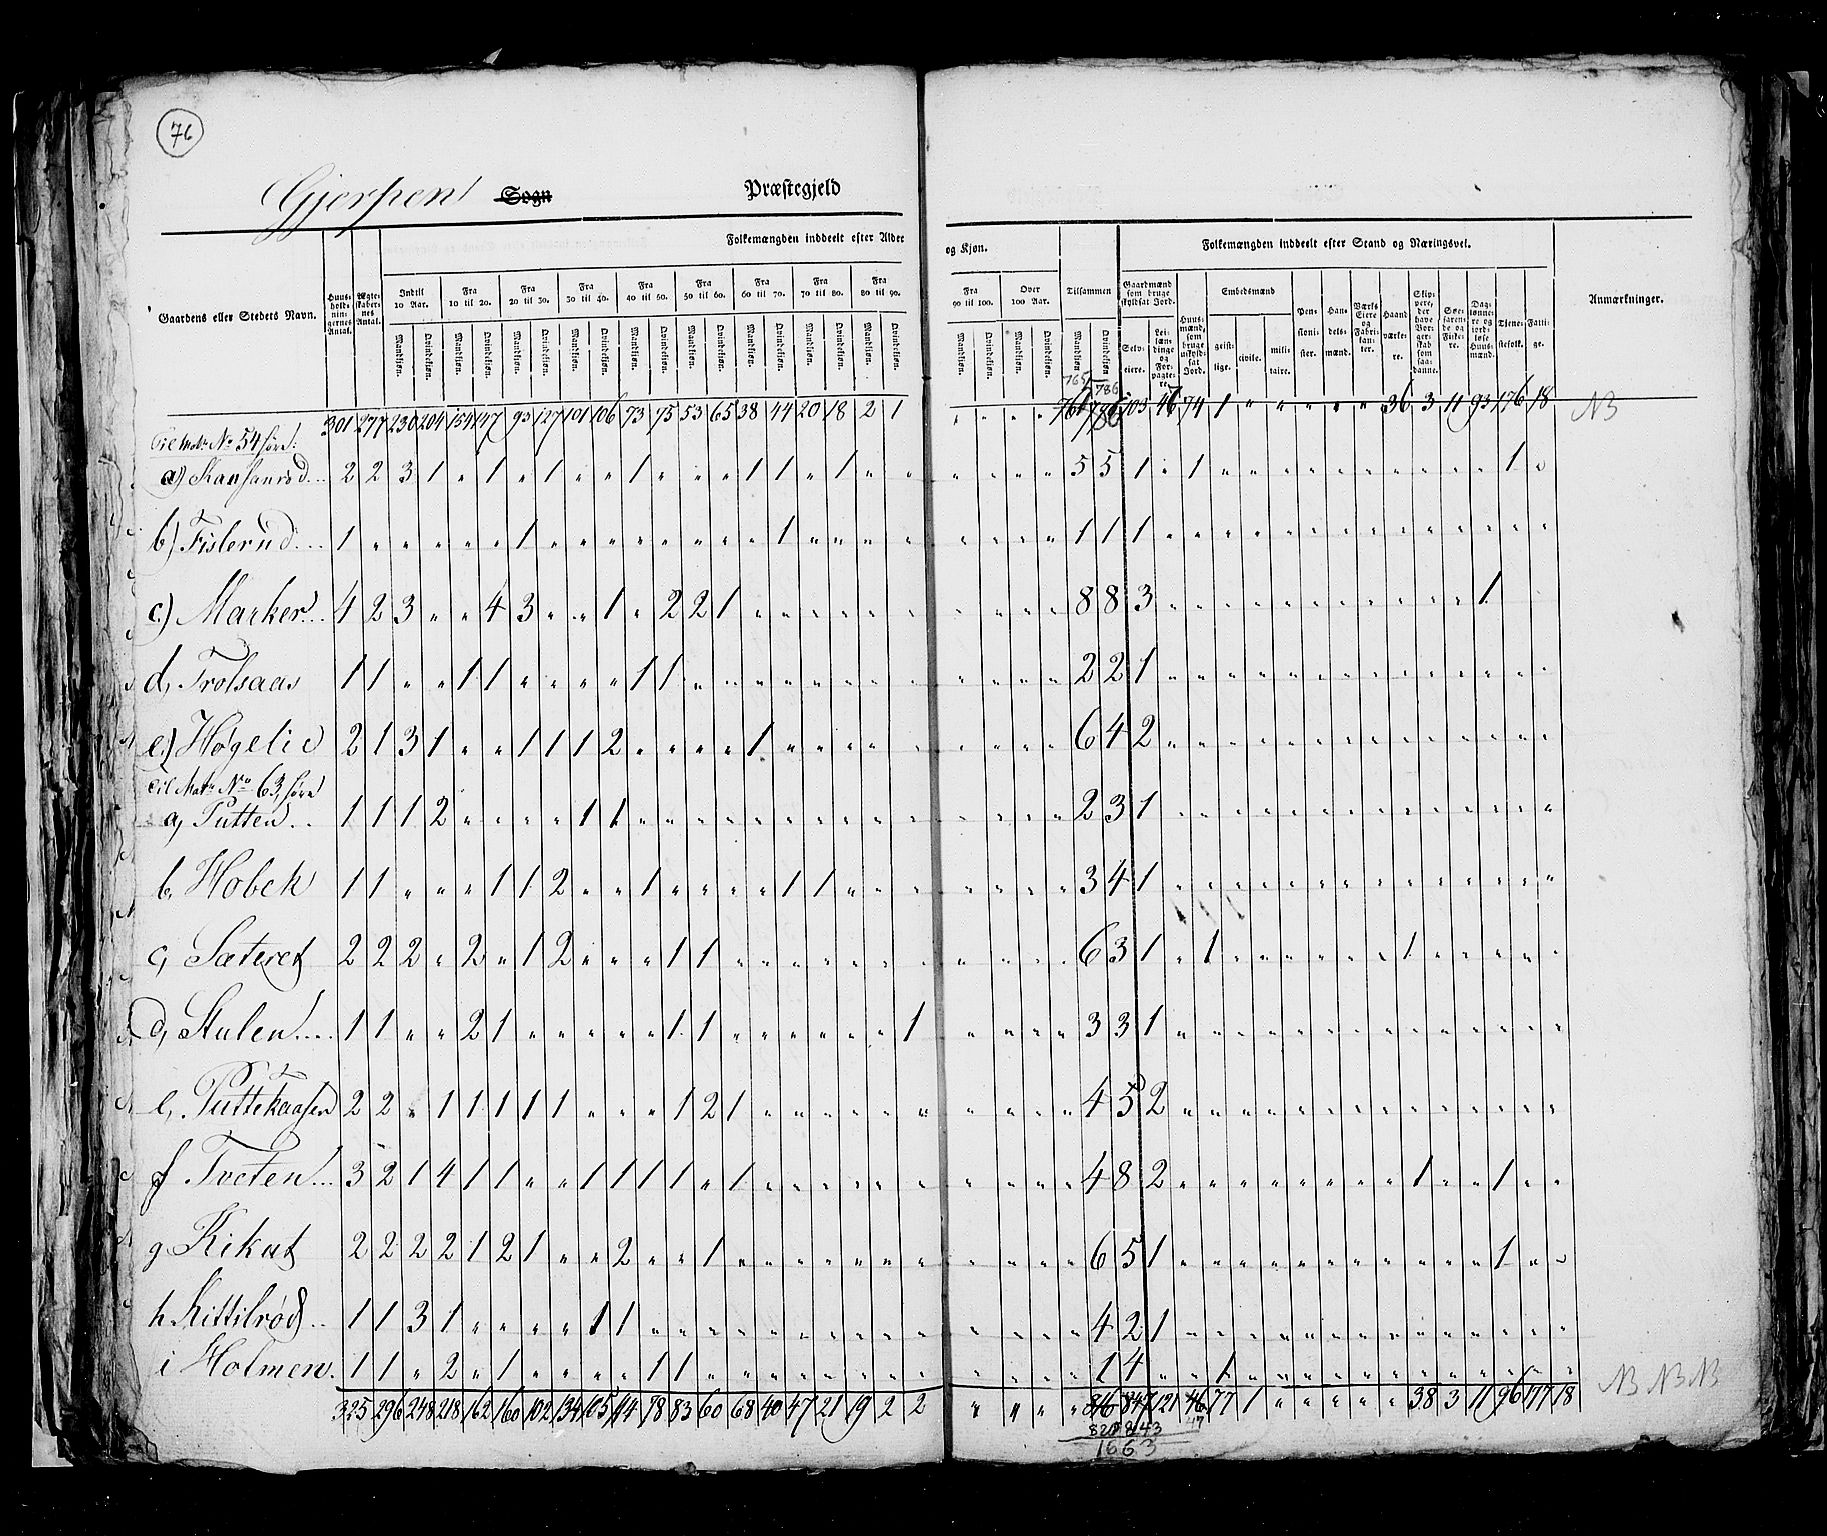 76
Gjerpen Sogn Præstegjeld
Gaardens eller Stedets Navn.
Huusholdningernes Antal.
Ægteskabernes Antal.
Folkemængden inddeelt efter Alder og Kjøn.
Indtil 10 Aar.
Fra 10 til 20.
Fra 20 til 30.
Fra 30 til 40.
Fra 40 til 50.
Fra 50 til 60.
Fra 60 til 70.
Fra 70 til 80.
Fra 80 til 90.
Fra 90 til 100.
Over 100 Aar.
Tilsammen
Mandkjøn. Qvindekjøn.
Folkemængden inddeelt efter Stand og Næringsvei.
Gaardmænd som bruge skyldsat Jord.
Selveiere.
Leilændinge og Forpagtere.
Huusmænd, som bruge uskyldsat Jord.
Embedsmænd
geistlige.
civile.
militaire.
Pensionister.
Handelsmænd.
Værks Eiere og Fabrikanter.
Haandværkere.
Skippere, der have Borgerskab som saadanne.
Søefarende og Fiskere.
Daglønnere og jordløse Huusmænd.
Tjenestefolk.
Fattige.
Anmærkninger.
765 786
301 277 230 204 154 147 93 127 101 106 73 75 53 65 38 44 20 18 2 1 " " " " 764 786 103 46 74 1 " " " " " 36 3 11 93 176 18 NB
til Matr No 54 søre:
a) Stansanrød... 2 2 3 1 " 1 " 1 " " 1 " " " 1 1 " 1 " " " " " " 5 5 1 " 1 " " " " " " " " " " 1 "
b) Fislerud... 1 " " " " " 1 " " " " " " " " 1 " " " " " " " " 1 1 1 " " " " " " " " " " " " " "
c) Marker... 4 2 3 " " 4 3 " " 1 " 2 2 1 " " " " " " " " " " 8 8 3 " " " " " " " " " " " 1
d, Trolsaas 1 1 " " 1 1 " " " " 1 1 " " " " " " " " " " " " 2 2 1 " " " " " " " " " " " " " "
e) Høgelie 2 1 3 1 " " 1 1 1 2 " " " " 1 " " " " " " " " " 6 4 2 " " " " " " " " " " " " " "
til Matr No 63, søre
a, Putten.. 1 1 1 2 " " " " 1 1 " " " " " " " " " " " " " " 2 3 1 " " " " " " " " " " " " " "
b, Hobek 1 1 " " " 1 1 2 " " 1 " " " " 1 1 " " " " " " " 3 4 1 " " " " " " " " " " " " " "
c, Sæteret 2 2 2 " 2 " 1 2 " " " 1 1 " " " " " " " " " " " 6 3 1 " 1 " " " " " " 1 " " " " "
d, Stulen.... 1 1 " " 2 1 " " " " " 1 1 " " " " " " 1 " " " " 3 3 1 " " " " " " " " " " " " " "
e, Puttekaasen 2 2 " 1 1 1 1 1 " " " 1 2 1 " " " " " " " " " " 4 5 2 " " " " " " " " " " " " " "
f Tveten... 3 2 1 4 1 1 " " 1 1 1 1 " 1 " " " " " " " " " " 4 8 2 " " " " " " " " 1 " " 1 " "
g Kikut 2 2 2 2 1 2 1 " " 2 " " 1 " " " " " " " " " " " 6 5 1 " " " " " " " " " " " 1 " "
h Kittilrød.. 1 1 3 1 " " " " 1 1 " " " " " " " " " " " " " " 4 2 1 " " " " " " " " " " " " " "
i Holmen. 1 1 " 2 " 1 " " " " 1 1 " " " " " " " " " " " " 1 4 " " 1 " " " " " " " " " " " "
325 296 248 218 162 160 102 134 105 114 78 83 60 68 40 47 21 19 2 2 " " " " 816 847 121 46 77 1 " " " " " 38 3 11 96 177 18 NB NB NB
820 843 47
1663